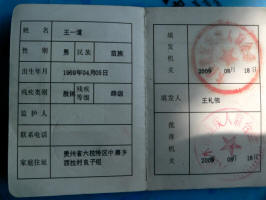 姓名 王一道
性别 男 民族 苗族
出生年月 1969年04月05日
残疾类别 肢体 残疾等级 肆级
监护人
联系电话
家庭住址 贵州省六枝特区中寨乡
西拉村良子组
填发机关
2009 08月18
填发人 王礼悦
批准机关
2009 08月18